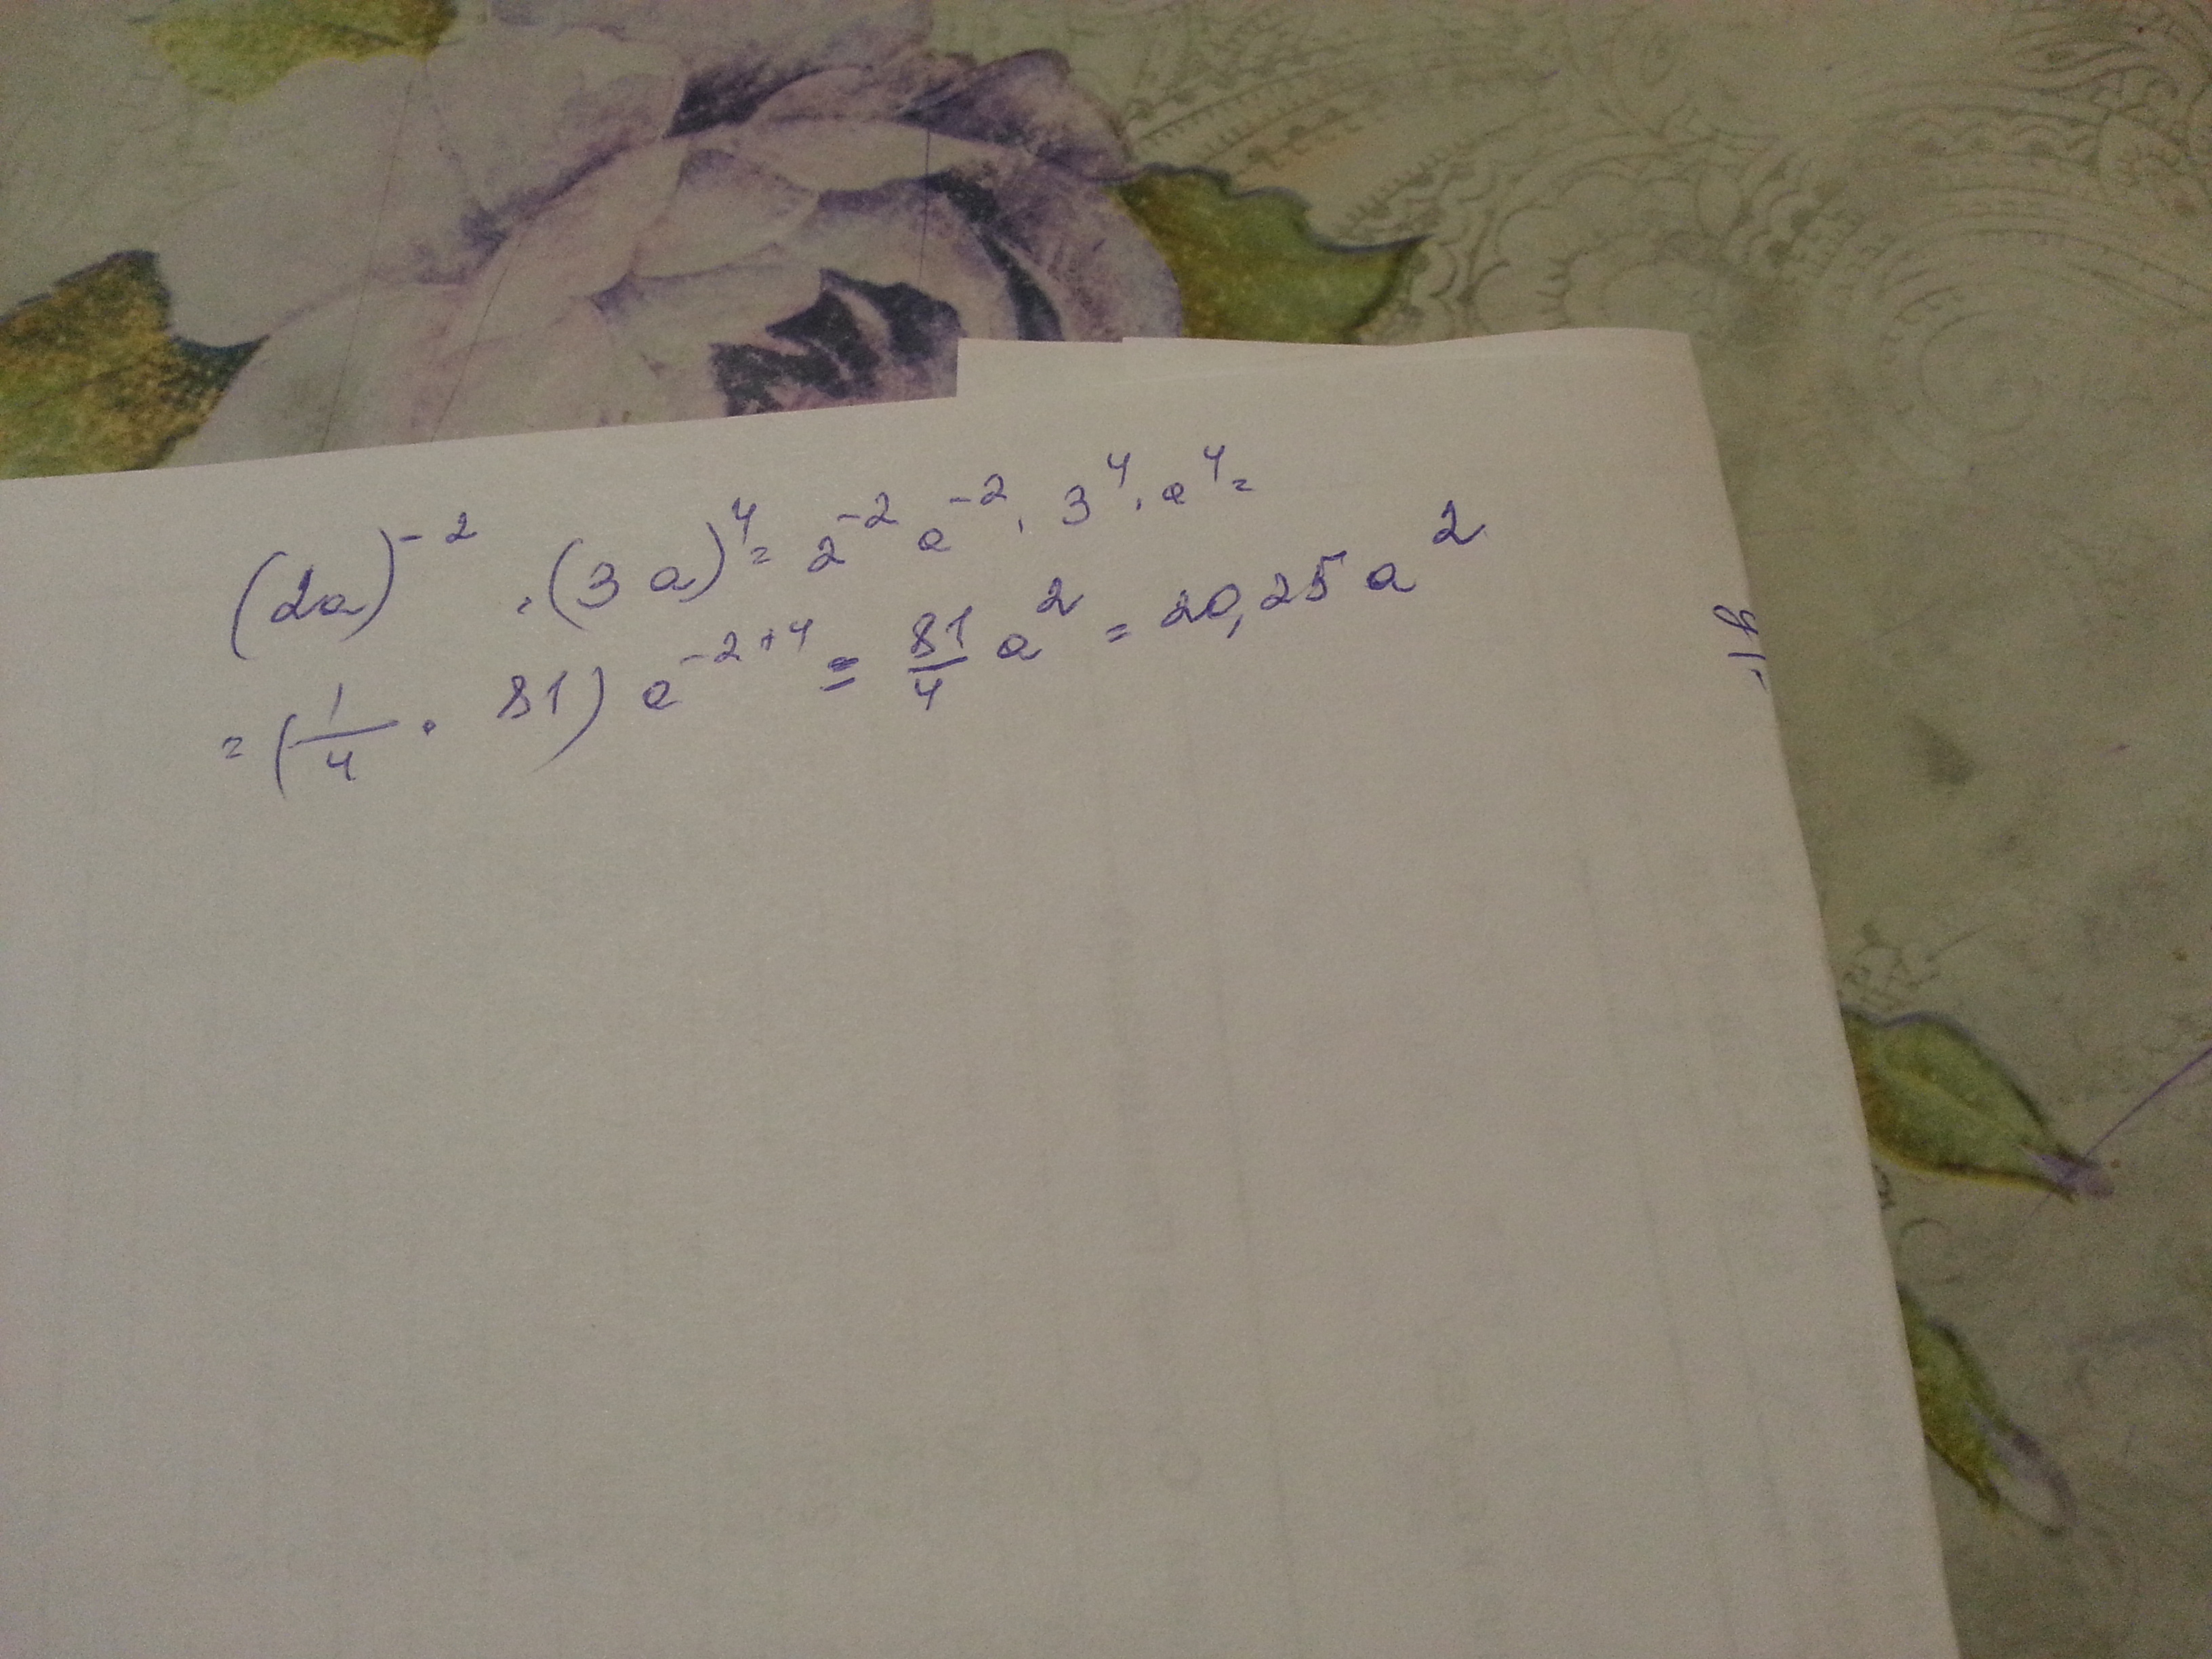 (2a)⁻² · (3a)⁴ = 2⁻² a⁻² · 3⁴ · a⁴ =
= (1/4 · 81) a⁻²⁺⁴ = 81/4 a² = 20,25 a²